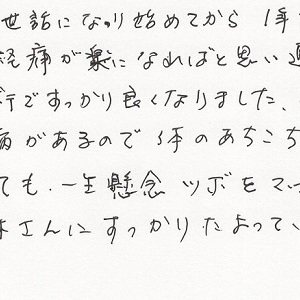 世話になり始めてから 1年
経痛が楽になればと思い通
行ですっかり良くなりました、
病があるので 体のあちこち
ても、一生懸念 ツボをマッ
さんにすっかりたよってい